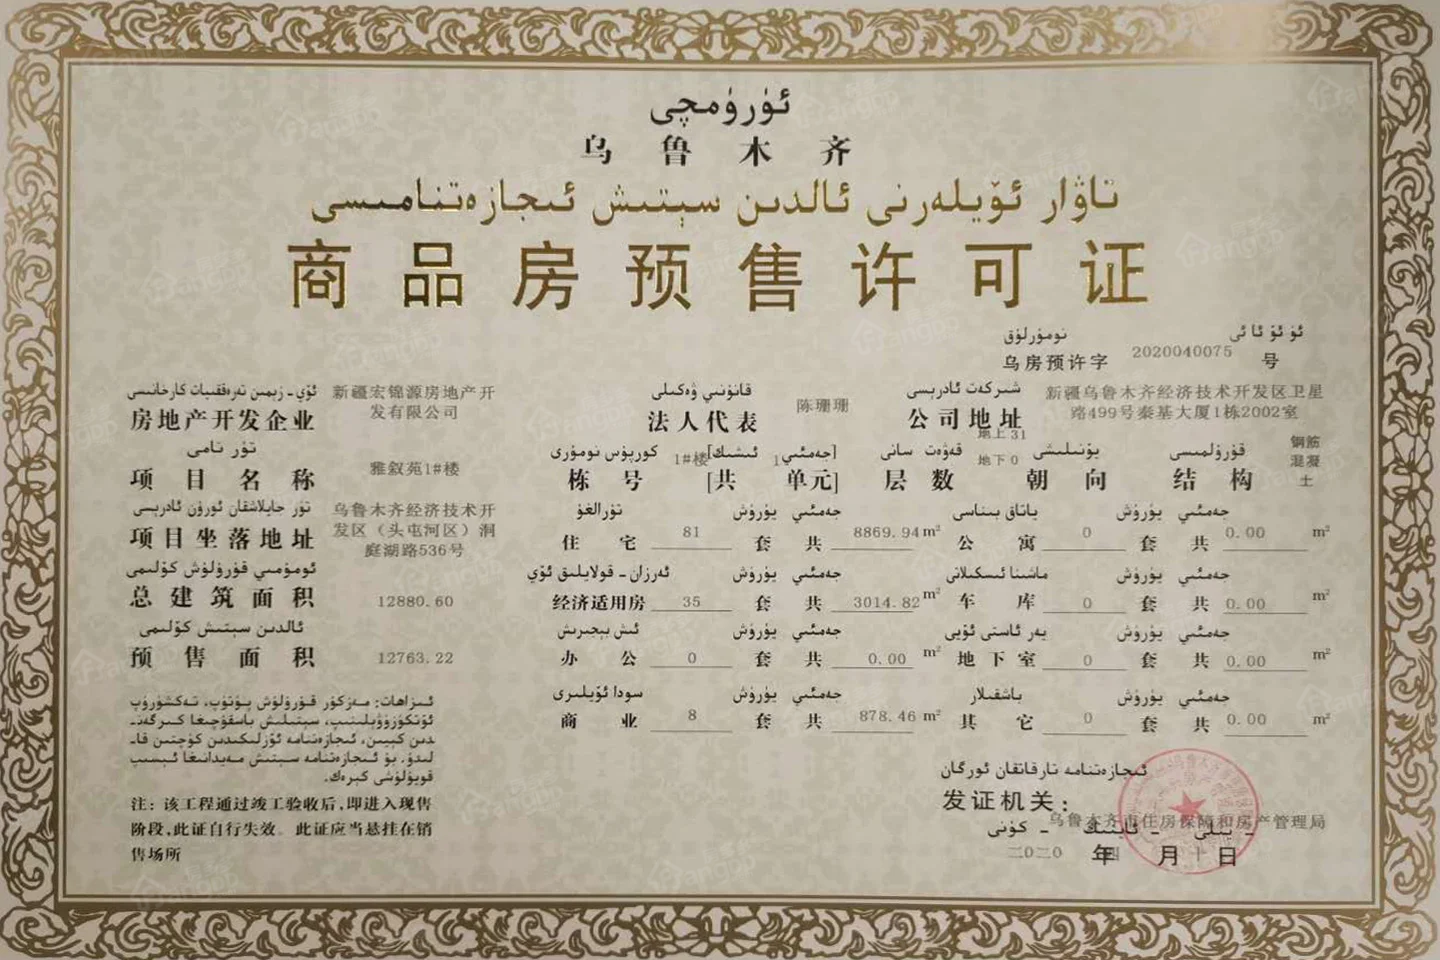 ئۈرۈمچى
乌鲁木齐
تاۋار ئۆيلەرنى ئالدىن سېتىش ئىجازەتنامىسى
商品房预售许可证
نومۇرلۇق ئۈ ئۆ ئا ئى
乌房预许字 2020040075 号
ئۆي - زېمىن تەرەققىيات كارخانىسى قانۇنىي ۋەكىلى شىركەت ئادرېسى
房地产开发企业 新疆宏锦源房地产开发有限公司 法人代表 陈珊珊 公司地址 新疆乌鲁木齐经济技术开发区卫星路499号秦基大厦1栋2002室
تۈر نامى كورپۇس نومۇرى [جەمئىي ئىشىك] قەۋەت سانى يۆنىلىشى قۇرۇلمىسى
项目名称 雅叙苑1#楼 栋号 1#楼 [共 1 单元] 层数 地上 31 地下 0 朝向 结构 钢筋混凝土
تۈر جايلاشقان ئورۇن ئادرېسى تۇرالغۇ يۈرۈش جەمئىي ياتاق بىناسى يۈرۈش جەمئىي
项目坐落地址 乌鲁木齐经济技术开发区（头屯河区）洞庭湖路536号 住宅 81 套 共 8869.94 m² 公寓 0 套 共 0.00 m²
ئومۇمىي قۇرۇلۇش كۆلىمى ئەرزان - قولايلىق ئۆي يۈرۈش جەمئىي ماشىنا ئىسكىلاتى يۈرۈش جەمئىي
总建筑面积 12880.60 经济适用房 35 套 共 3014.82 m² 车库 0 套 共 0.00 m²
ئالدىن سېتىش كۆلىمى ئىش بېجىرىش يۈرۈش جەمئىي يەر ئاستى ئۆيى يۈرۈش جەمئىي
预售面积 12763.22 办公 0 套 共 0.00 m² 地下室 0 套 共 0.00 m²
سودا ئۆيلىرى يۈرۈش جەمئىي باشقىلار يۈرۈش جەمئىي
商业 8 套 共 878.46 m² 其它 0 套 共 0.00 m²
ئىزاھات: مەزكۇر قۇرۇلۇش پۈتۈپ، تەكشۈرۈپ
ئۆتكۈزۈۋېلىنىپ، سېتىلىش باسقۇچىغا كىرگەن-
دىن كېيىن، ئىجازەتنامە ئۆزلىكىدىن كۈچتىن قا-
لىدۇ. بۇ ئىجازەتنامە سېتىش مەيدانىغا ئېسىپ
قويۇلۇشى كېرەك.
注：该工程通过竣工验收后,即进入现售
阶段,此证自行失效。此证应当悬挂在销
售场所
ئىجازەتنامە تارقاتقان ئورگان
发证机关：
乌鲁木齐市住房保障和房产管理局
- يىلى - ئاينىڭ - كۈنى
二〇二〇 年 四 月 十 日